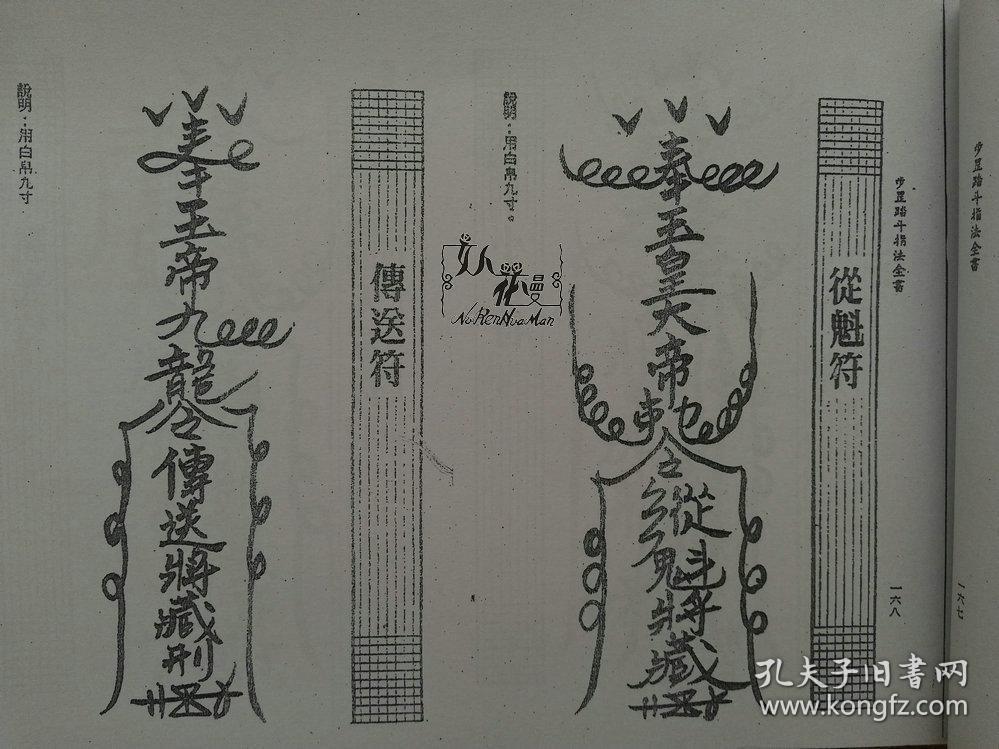 步罡踏斗指法全書
一六七
步罡踏斗指法全書
一六八
從魁符
奉玉皇大帝
令
縱魁將藏
說明：用白帛九寸。
傳送符
奉玉帝九龍
令傳送將藏刑
說明：用白帛九寸
女人花漫
NuRenHuaMan
孔夫子旧書网
www.kongfz.com